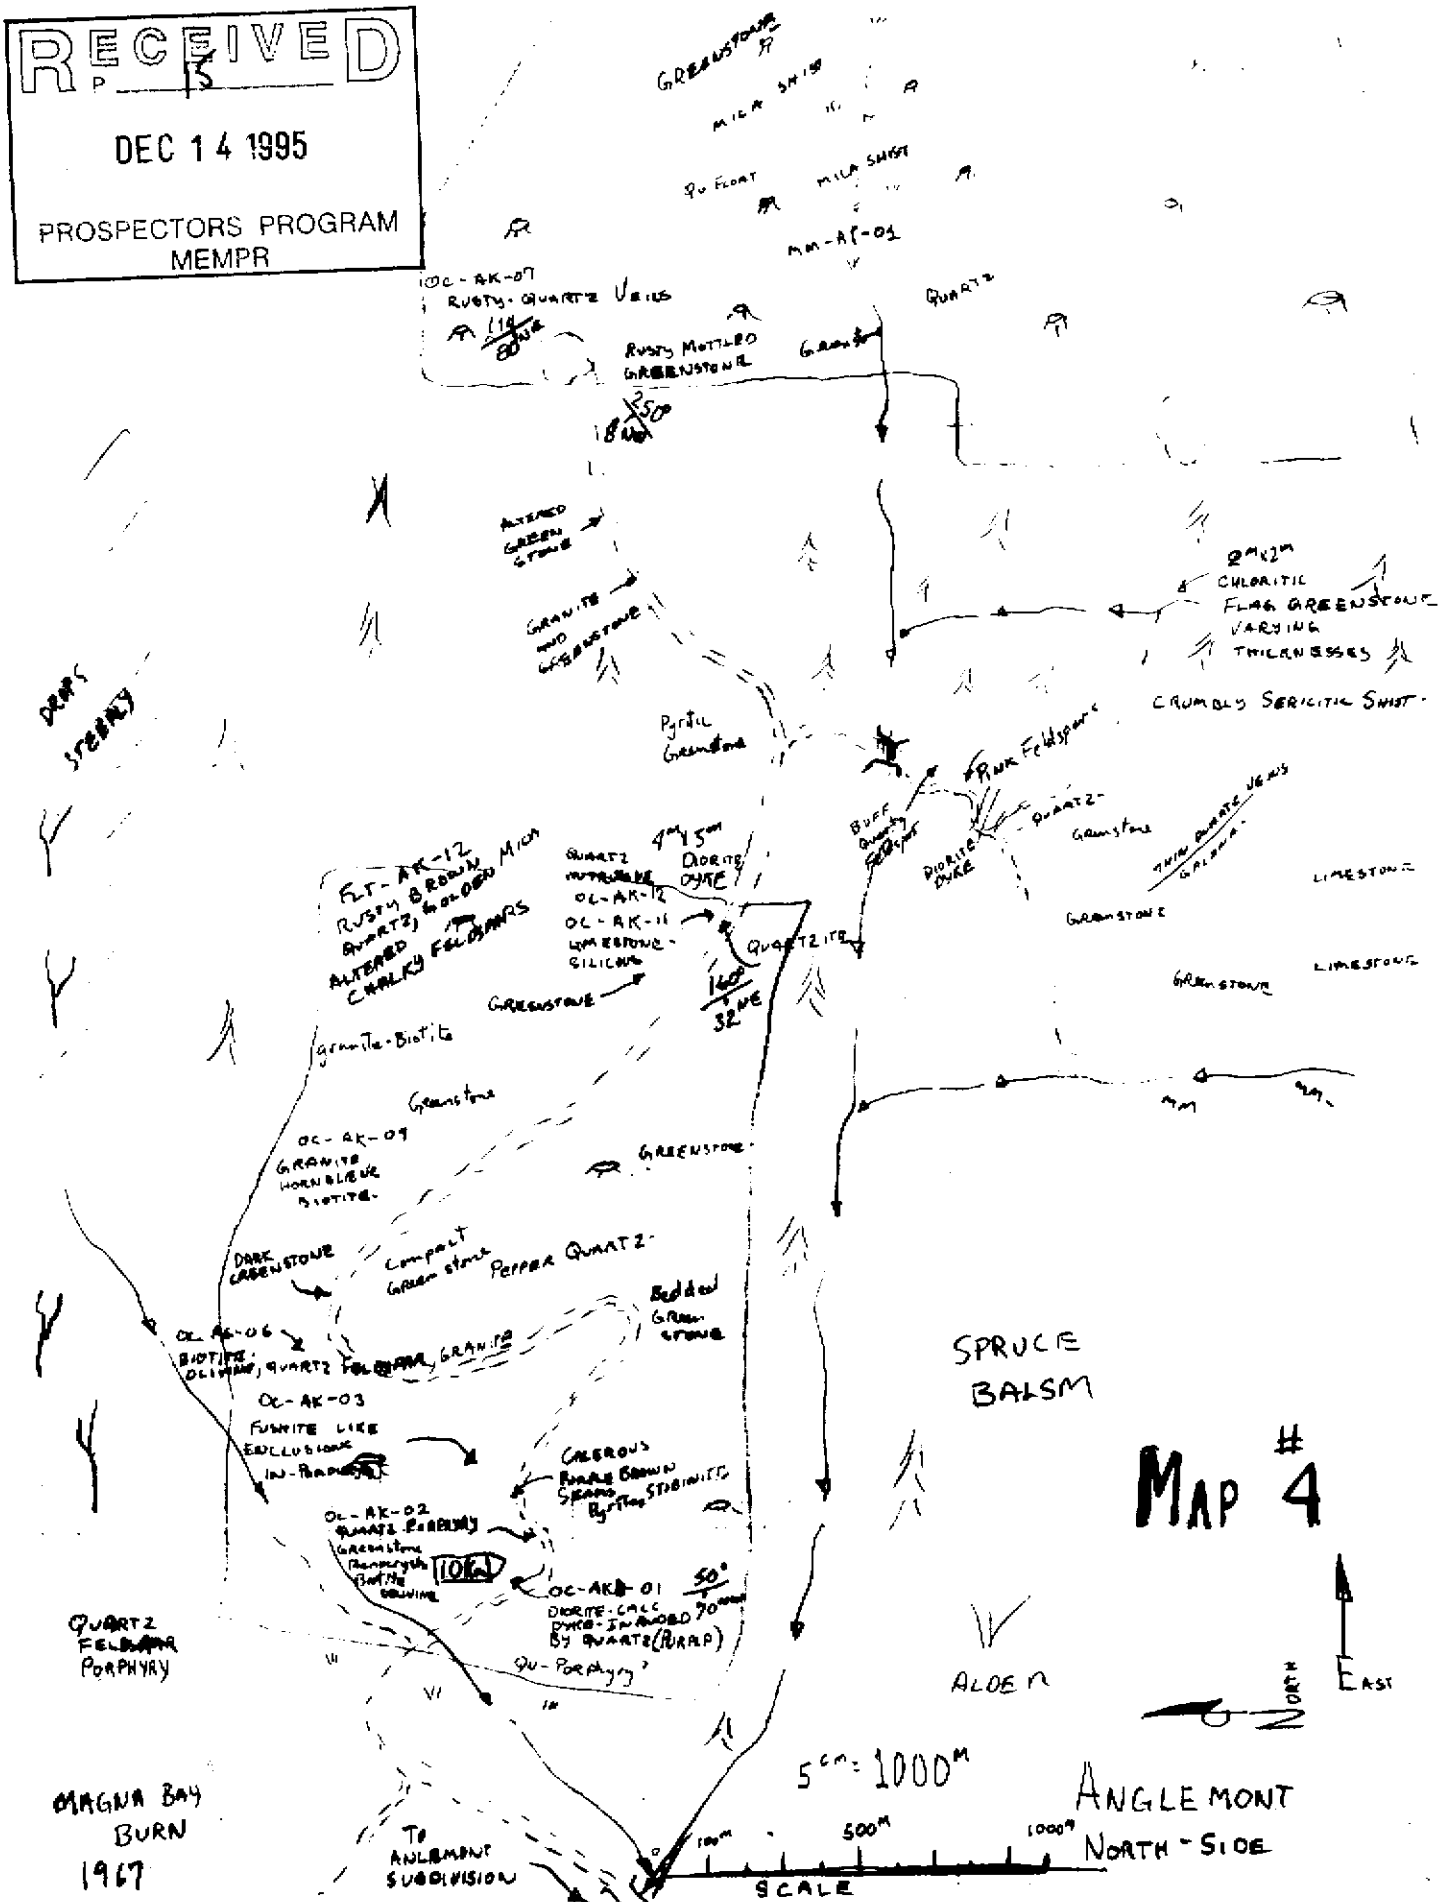 RECEIVED
P 15
DEC 14 1995
PROSPECTORS PROGRAM
MEMPR
GREENSTONE
MICA SHIST
QU FLOAT
MICA SHIST
QUARTZ
OC-AK-07
RUSTY-QUARTZ VEINS
114
80 NE
RUSTY MOTTLED
GREENSTONE
250°
ALTERED
GREEN
STONE
GRANITE
AND
GREENSTONE
2M x 2M
CHLORITIC
FLAG GREENSTONE
VARYING
THICKNESSES
CRUMBLY SERICITIC SHIST.
DROPS
STEEPLY
Pyrtic
Greenstone
PINK Feldspars
BUFF
Feldspar
DIORITE
DYKE
QUARTZ-
Greenstone
THIN QUARTZ VEINS
GALENA-
LIMESTONE
GREENSTONE
LIMESTONE
GREENSTONE
FLT-AK-12
RUSTY BROWN MICA
QUARTZ, GOLDEN
ALTERED
CHALKY FELDSPARS
QUARTZ
4M x 5M
DIORITE
DYKE
OC-AK-12
OC-AK-11
LIMESTONE-
SILICUS
QUARTZITE
GREENSTONE
160°
32 NE
granite-Biotite
Greenstone
OC-AK-09
GRANITE
HORNBLENE
BIOTITE-
GREENSTONE-
MM
MM-
DARK
GREENSTONE
Compact
Green stone
PEPPER QUARTZ-
Bedded
Green
STONE
OC AK-06
BIOTITE-
OLIVINE, QUARTZ FELDSPAR, GRANITE
OC-AK-03
FUSHITE LIKE
ENCLUSIONS
SPRUCE
BALSM
CALEROUS
PURPLE BROWN
SEAMS
STIBINITE
OC-AK-02
QUARTZ PORPHYRY
Greenstone
Biotite
OLIVINE
10 Km
OC-AK-01
50°
DIORITE-CALC
DYKE-INVADED
BY QUARTZ (PURPLE)
QU-Porphyry?
MAP #4
QUARTZ
FELDSPAR
PORPHYRY
ALDER
NORTH
EAST
5cm = 1000M
MAGNA BAY
BURN
1967
TO
ANLEMONT
SUBDIVISION
ANGLEMONT
NORTH-SIDE
0 100M 500M 1000M
SCALE